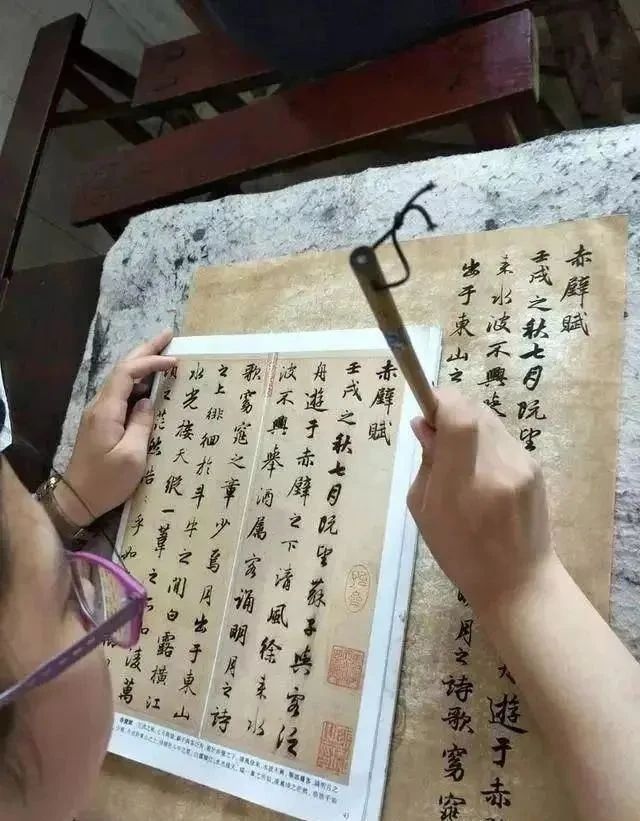 赤壁賦
壬戌之秋七月既望
遊于赤
來水波不興
明月之詩歌窈窕
出于東山之
赤壁賦
壬戌之秋七月既望蘇子與客泛
舟遊于赤壁之下清風徐來水
波不興舉酒屬客誦明月之詩
歌窈窕之章少焉月出于東山
之上徘徊於斗牛之間白露橫江
水光接天縱一葦之所如凌萬
頃之茫然浩〻乎如